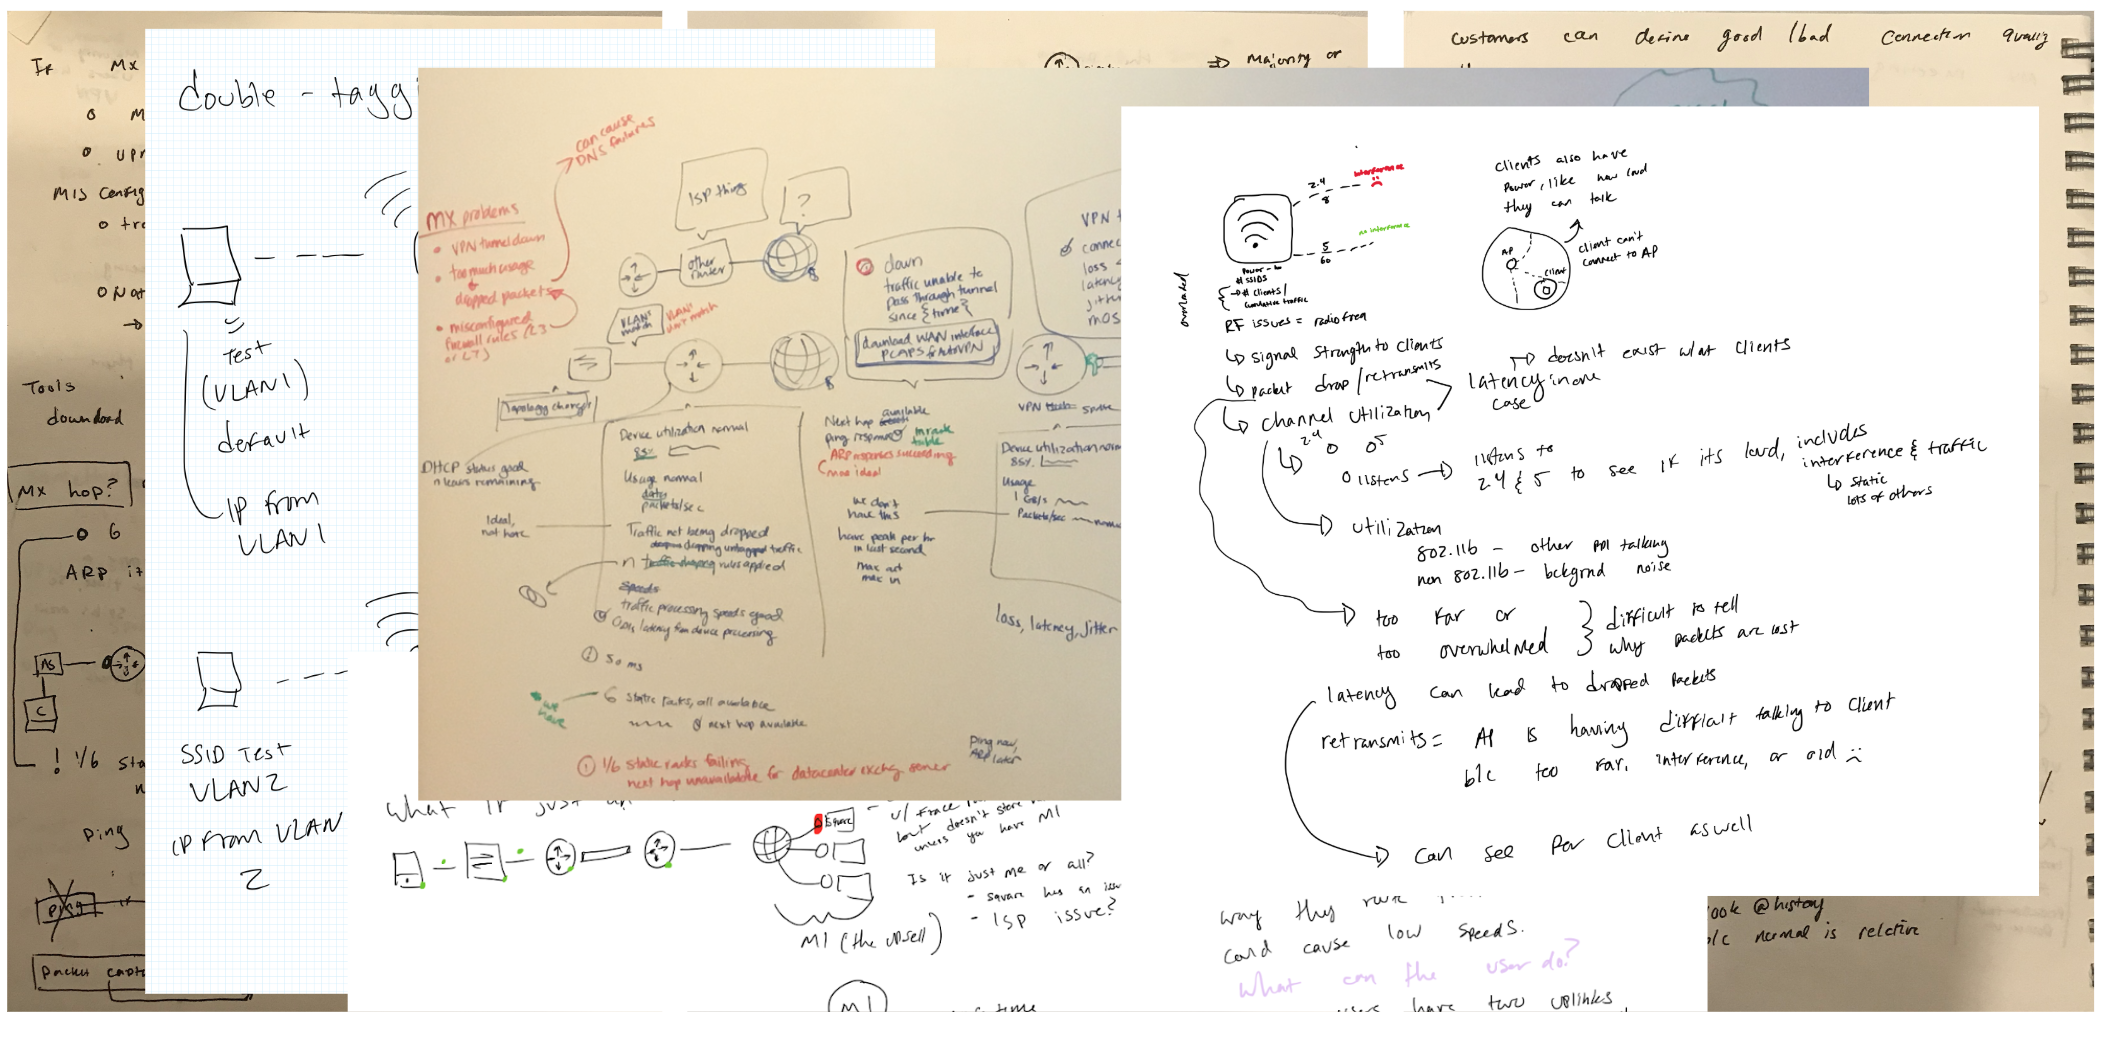 If MX
o M
o
MIS config
o
o Nat
Tools
download
MX hop?
o 6
ARP it
AS
C
! 1/6 sta
ping
ping if
packet capt
double - tagg
Test
(VLAN1)
default
IP from
VLAN1
SSID Test
VLAN2
IP from VLAN
2
can cause
DNS failures
MX problems
• VPN tunnel down
• too much usage
dropped packets
• misconfigured
firewall rules (L3
or L7)
ISP thing
?
other
router
VLAN's
match
VLAN's
don't match
Topology changes
down
traffic unable to
pass through tunnel
since {time}
download WAN interface
PCAPS for AutoVPN
VPN t
connec
loss
latency
jitt
mos
VPN
DHCP status good
n leases remaining
Ideal,
not here
Device utilization normal
85%
Usage normal
data
packets/sec
Traffic not being dropped
dropping untagged traffic
n rules applied
Speeds
traffic processing speeds good
latency from device processing
50 ms
we
have
6 static routes, all available
next hop available
! 1/6 static routes failing
next hop unavailable for datacenter exchg server
Next hop available
ping response
in route
table
ARP responses succeeding
(more ideal
we don't
have this
have peak per hr
in last second
max out
max in
Device utilization norm
85%
Usage
1 GB/s
Packets/sec
loss, latency, jitter
Ping now,
ARP later
what if just
Square
but doesn't store
unless you have MI
Is it just me or all?
- square has an issu
- ISP issue?
MI (the upsell)
MI
time
Majority or
customers can define good / bad connection quality
2.4
8
interference
5
60
no interference
Power -
# SSIDS
# clients /
cumulative traffic
overloaded
RF issues = radio freq
signal strength to clients
packet drop / retransmits
channel utilization
latency in one
case
doesn't exist w/at clients
clients also have
power, like how loud
they can talk
AP
client
client can't
connect to AP
2.4 o o5
o listens
listens to
2.4 & 5 to see if its loud, includes
interference & traffic
static
lots of others
utilization
802.11b - other ppl talking
non 802.11b - bckgrnd noise
too far or
too overwhelmed
difficult to tell
why packets are lost
latency can lead to dropped packets
retransmits = AP is having difficult talking to client
b/c too far, interference, or old
can see per client as well
way they
could cause low speeds.
what can the user do?
users have two uplinks
look @ history
b/c normal is relative